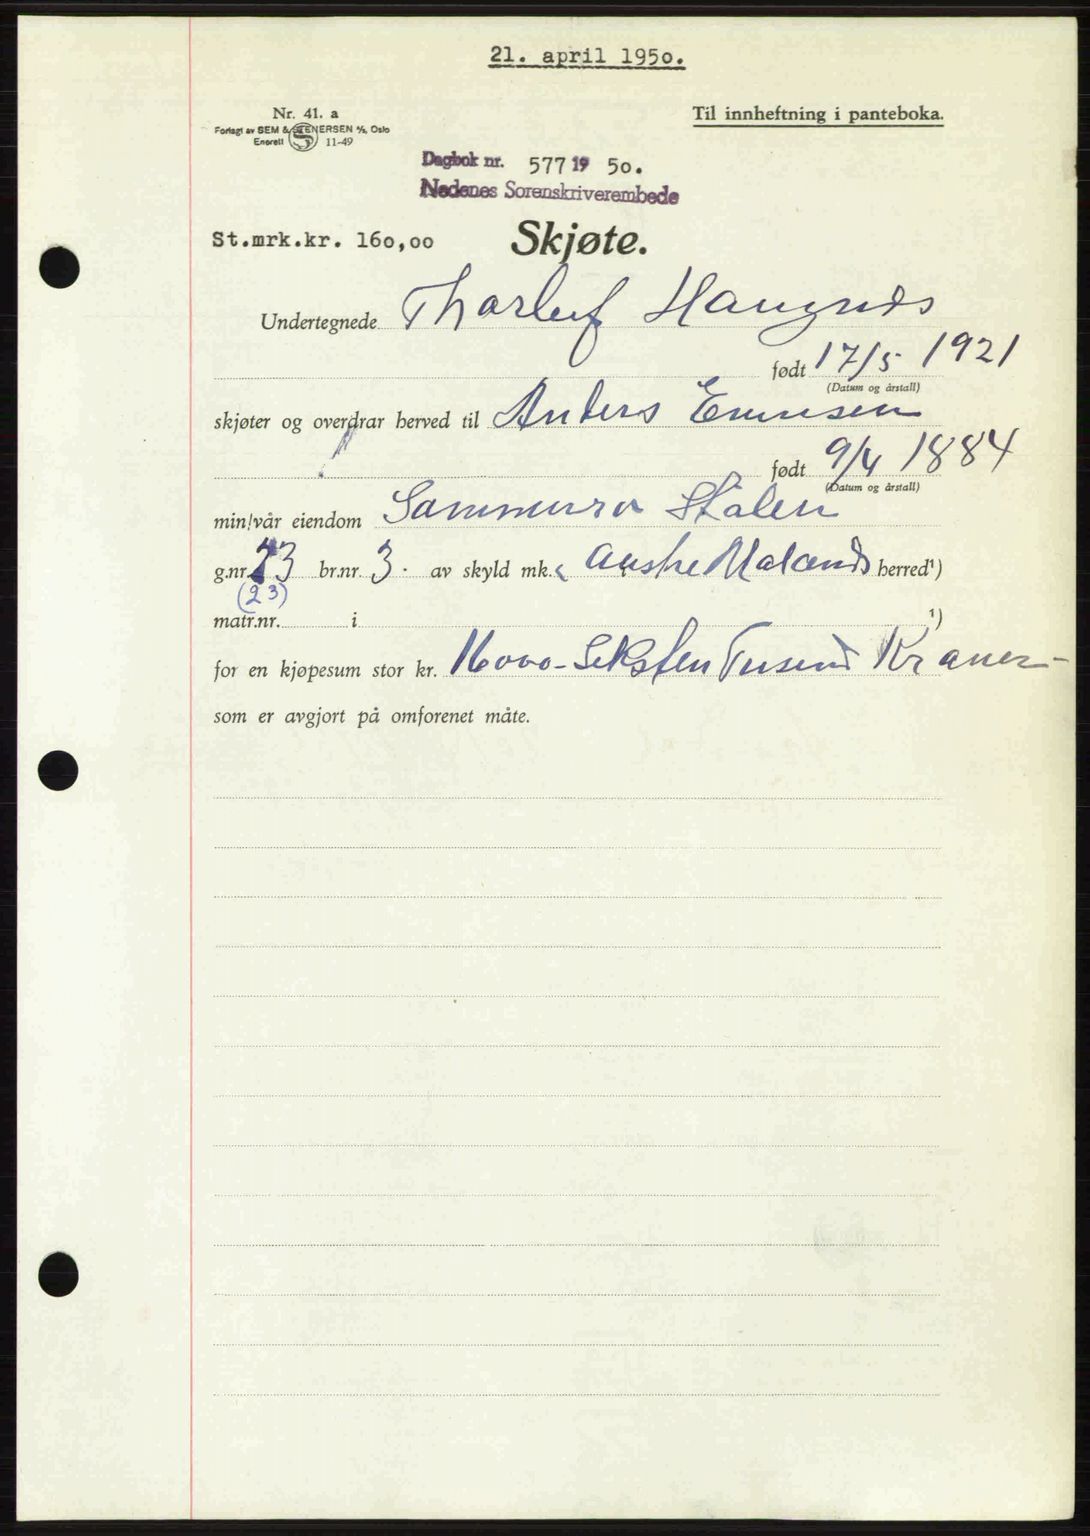 21. april 1950.
Nr. 41. a
Til innheftning i panteboka.
Forlagt av SEM & STENERSEN A/S, Oslo
Enerett 11-49
Dagbok nr. 577 19 50.
Nedenes Sorenskriverembede
St.mrk.kr. 160,00
Skjøte.
Undertegnede Thorleif
født 17/5 1921
(Datum og årstall)
skjøter og overdrar herved til Anders
født 9/4 1884
(Datum og årstall)
min/vår eiendom
g.nr. 23 br.nr. 3. av skyld mk. Austre Moland herred¹)
(23)
matr.nr. i ¹)
for en kjøpesum stor kr. 16000 - Seksten Tusend Kroner -
som er avgjort på omforenet måte.